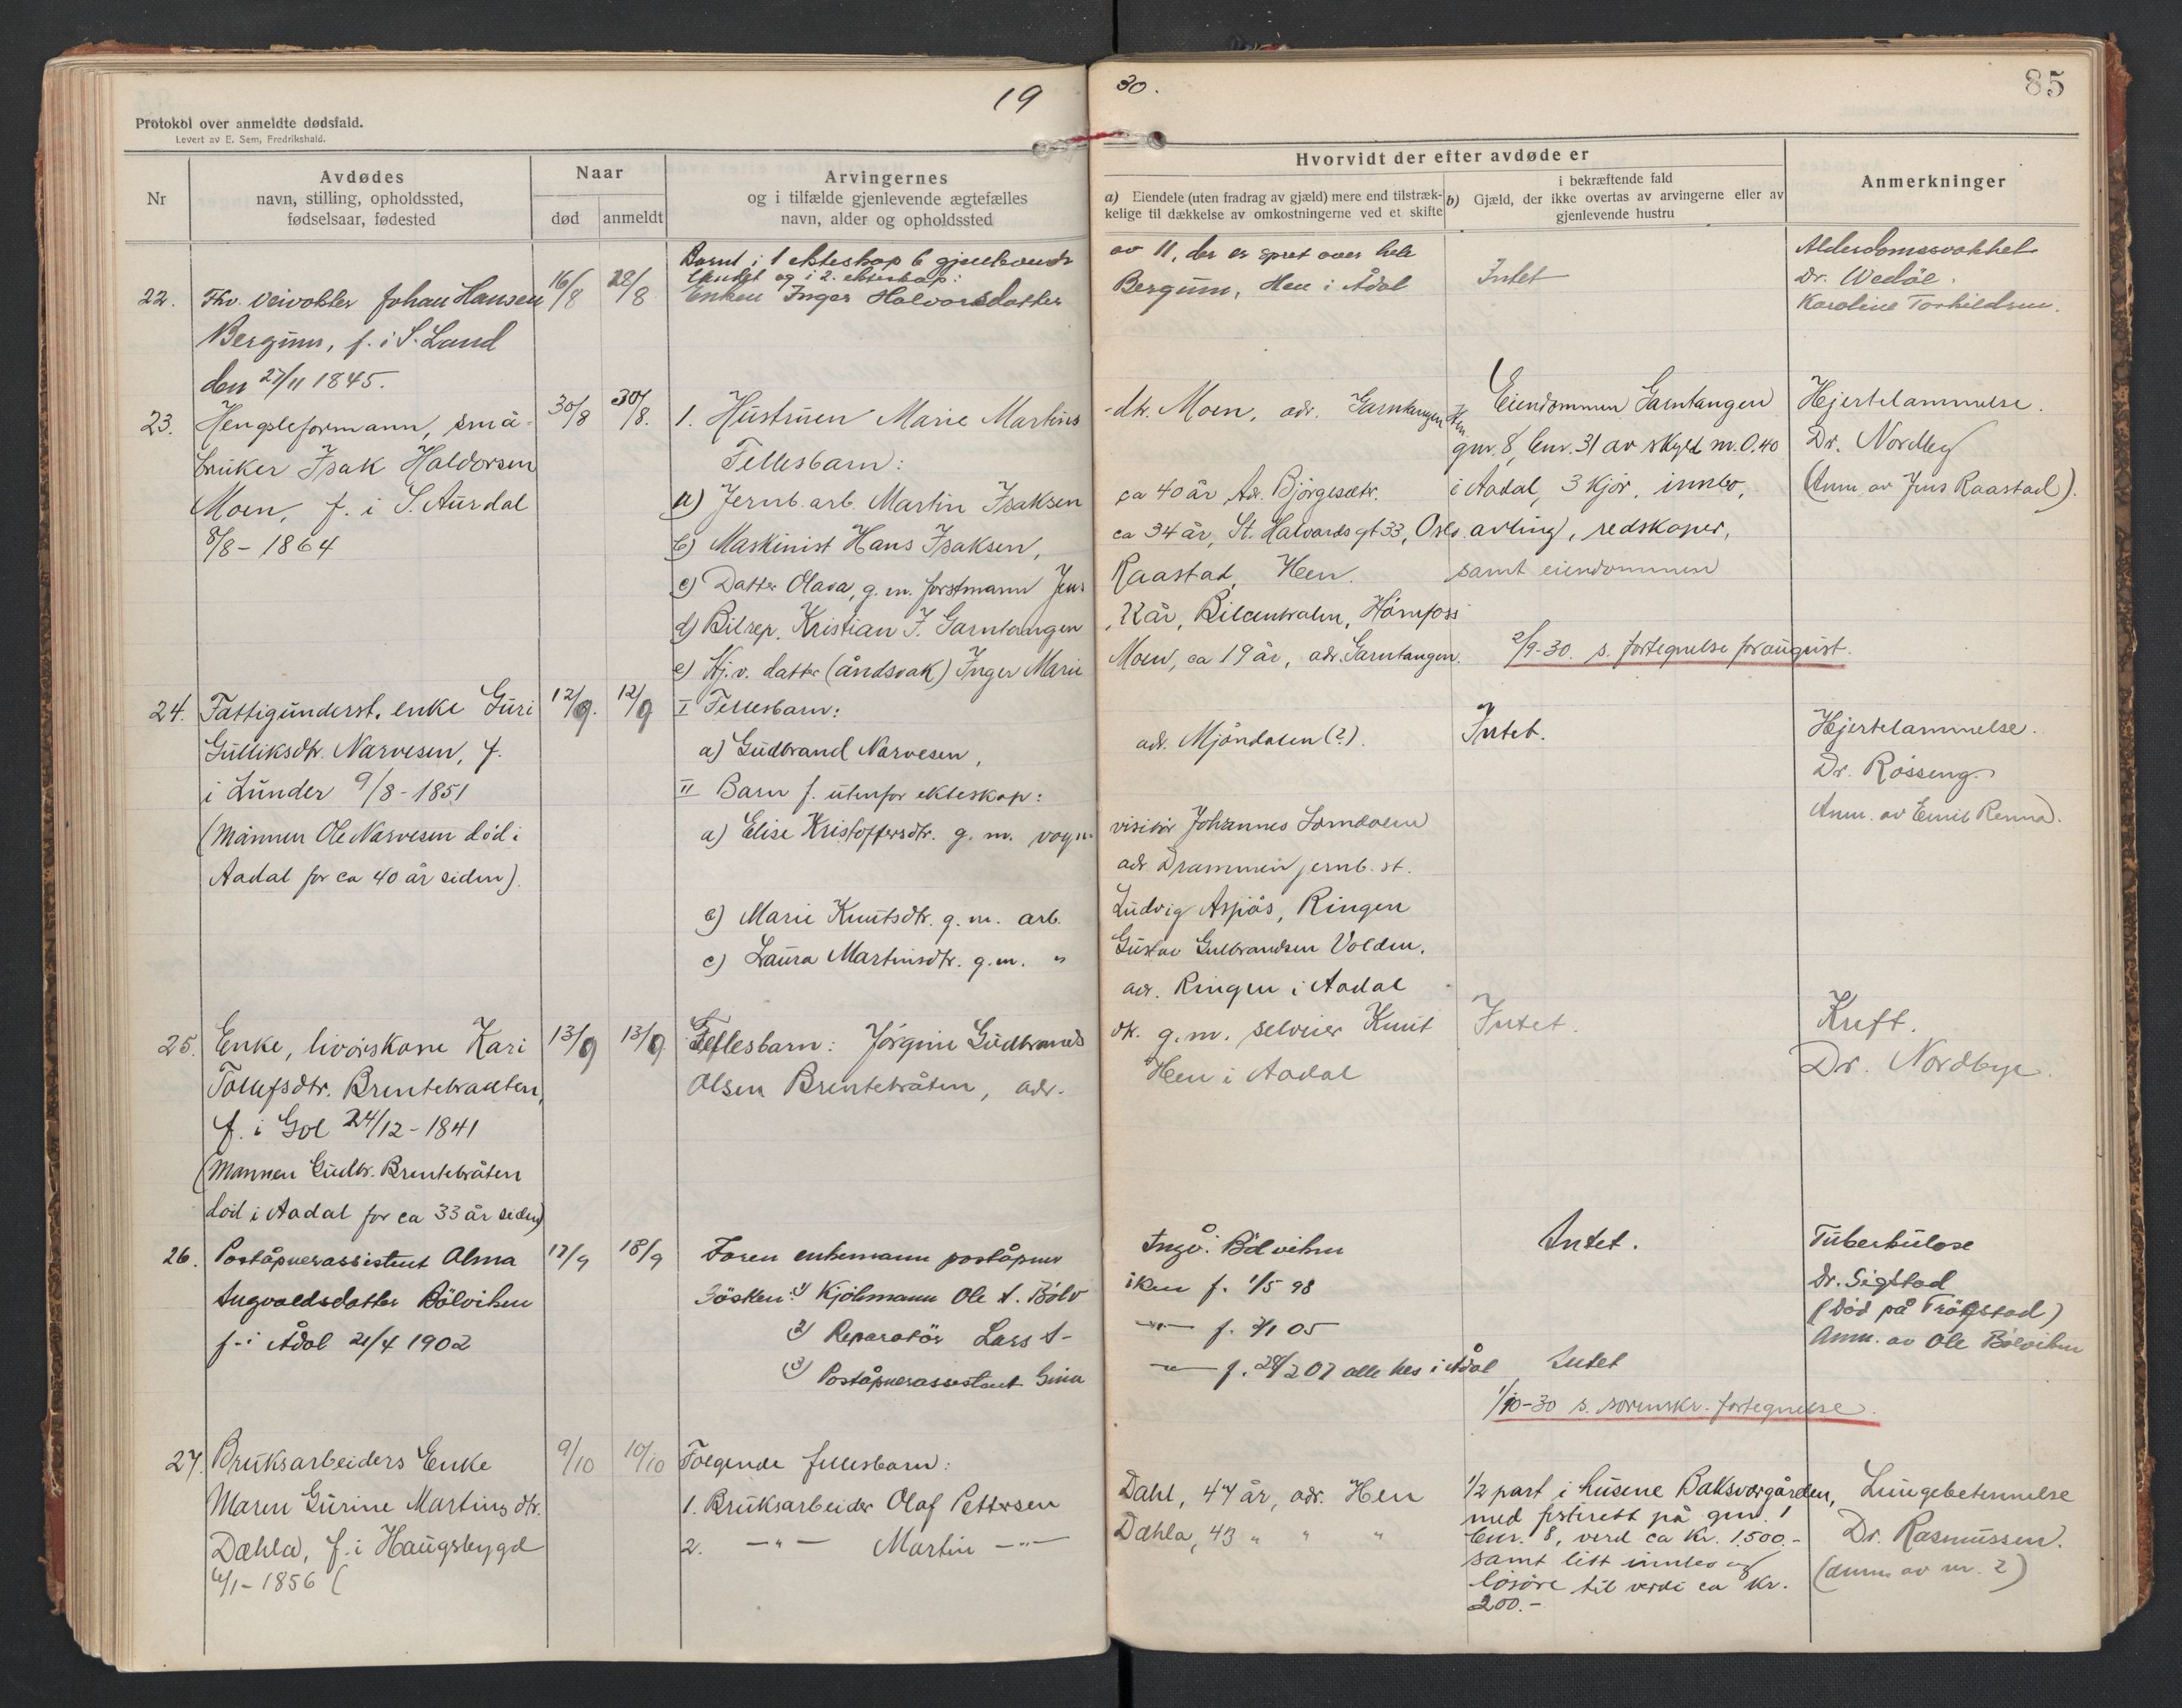 19
30.
85
Protokol over anmeldte dødsfald.
Levert av E. Sem, Fredrikshald.
Nr
Avdødes
navn, stilling, opholdssted,
fødselsaar, fødested
Naar
død
anmeldt
Arvingernes
og i tilfælde gjenlevende ægtefælles
navn, alder og opholdssted
Hvorvidt der efter avdøde er
a) Eiendele (uten fradrag av gjæld) mere end tilstræk-
kelige til dækkelse av omkostningerne ved et skifte
i bekræftende fald
b) Gjæld, der ikke overtas av arvingerne eller av
gjenlevende hustru
Anmerkninger
22. Fhv. veivokter Johan Hansen
Bergum, f. i S. Land
den 27/11 1845.
16/8 28/8
Barnt i 1 ekteskap 6 gjenlevende
og i 2. ekteskap:
Enken Inger Halvorsdatter
av 11, der er spret over hele
Bergum, Hen i Ådal
Intet
Alderdomssvakhet
Dr. Wedøe.
Karoline Torkildsen.
23. Hengsleformann, små-
bruker Isak Haldorsen
Moen, f. i S. Aurdal
8/8 - 1864
30/8 30/8.
1. Hustruen Marie Martins
Fellesbarn:
a) Jernb. arb. Martin Isaksen
b) Maskinist Hans Isaksen,
c) Datter Olava, g. m. forstmann Jens
d) Bilrep. Kristian I. Garntangen
e) Hj. v. datter (åndsvak) Inger Marie
-dtr. Moen, adr. Garntangen Hen
ca 40 år Adr. Bjørgesetr.
ca 34 år, St. Halvards gt 33, Oslo
Raastad, Hen.
år, Bilcentralen, Hønefoss
Moen, ca 19 år, adr. Garntangen.
Eiendommen Garntangen
gnr. 8, bnr. 31 av skyld m. 0.40
i Aadal, 3 kjør, innbo,
avling, redskaper,
samt eiendommen
2/9-30. s. fortegnelse for august.
Hjertelammelse.
Dr. Nordby
(Anm. av Jens Raastad).
24. Fattigunderst. enke Guri
Gulliksdtr. Narvesen, f.
i Lunder 9/8 - 1851
(Mannen Ole Narvesen död i
Aadal for ca 40 år siden).
12/9. 12/9
I Fellesbarn:
a) Gudbrand Narvesen,
II Barn f. utenfor ekteskap:
a) Elise Kristoffersdtr. g. m. vogn-
b) Marie Knutsdtr. g. m. arb.
c) Laura Martinsdtr. g. m. "
adr. Mjöndalen (?).
visitör Johannes Lomdalen
adr. Drammen jernb. st.
Ludvig Aspås, Ringen
Gustav Gulbrandsen Volden,
adr. Ringen i Aadal
Intet.
Hjertelammelse.
Dr. Rosseng.
Anm. av Emil Renna.
25. Enke, livörskone Kari
Tollefsdtr. Brentebraaten,
f. i Gol 24/12 - 1841
(Mannen Gudbr. Brentebråten
död i Aadal for ca 33 år siden)
13/9 13/9
Fellesbarn: Jörgine Gudbrands
Olsen Brentebråten, adr.
dtr. g. m. selveier Knut
Hen i Aadal
Intet.
Kreft.
Dr. Nordbye.
26. Poståpnerassistent Alma
Ingvaldsdatter Bölviken
f. i Ådal 21/4 1902
17/9 18/9
Faren enkemann poståpner
Søsken: 1) Kjøbmann Ole I. Bölv
2) Reparatör Lars I -
3) Poståpnerassistent Gina
Ingv. Bölviken
iken f. 1/5 98
-"- f. 2/1 05
-"- f. 28/2 07 alle hes i Ådal
Intet.
Intet
1/10-30 s. sorenskr. fortegnelse.
Tuberkulose
Dr. Sigstad
(Död på Trögstad)
Anm. av Ole Bölviken
27. Bruksarbeiders Enke
Maren Gurine Martinsdtr.
Dæhla, f. i Haugsbygd
6/1 - 1856 (
9/10 10/10
Følgende fellesbarn:
1. Bruksarbeider Olaf Pettersen
2. -"- Martin -"-
Dahl, 47 år, adr. Hen
Dæhla, 43 " " "
1/2 part i husene Baksvorgården,
med festerett på gnr. 1
bnr. 8, verd ca kr. 1500.-
samt litt innbo og
lösöre til verdi ca kr.
200.-
Lungebetennelse
Dr. Rasmussen.
(anm. av nr. 2)